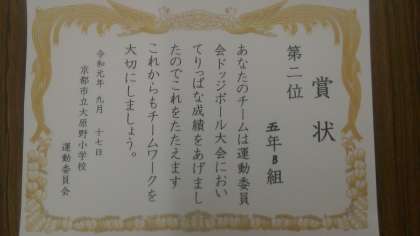 賞状
第二位
五年B組
あなたのチームは運動委員
会ドッジボール大会におい
てりっぱな成績をあげまし
たのでこれをたたえます
これからもチームワークを
大切にしましょう。
令和元年 九月 十七日
京都市立大原野小学校
運動委員会